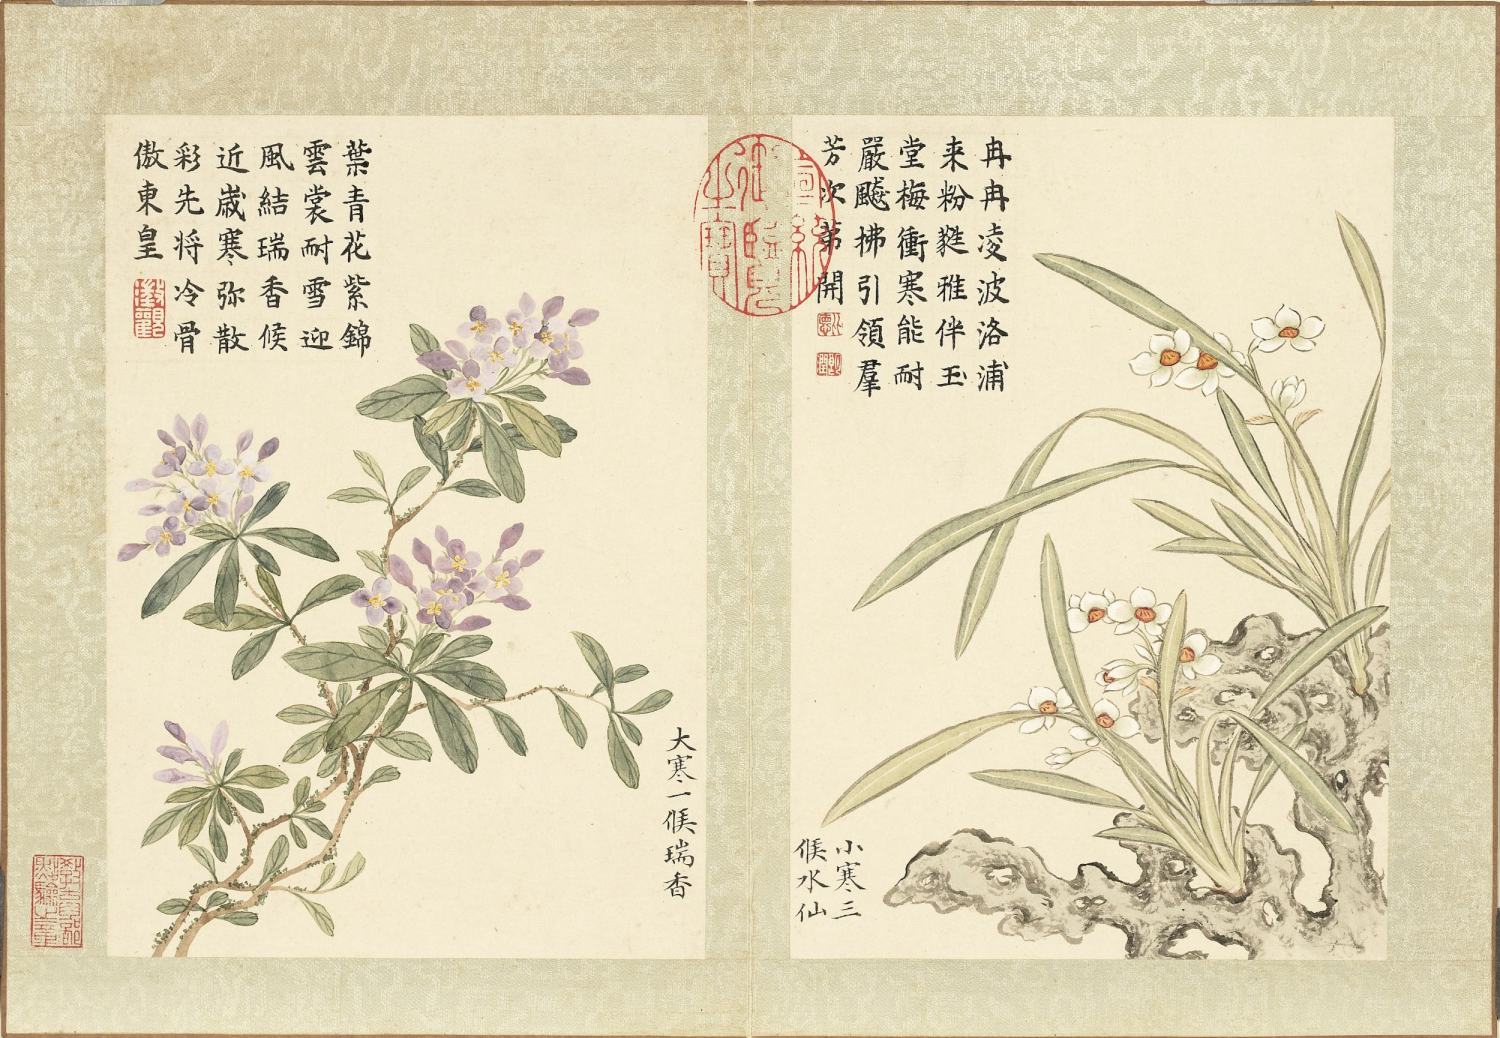 冉冉凌波洛浦
来粉甤雅伴玉
堂梅衝寒能耐
嚴飈拂引領羣
芳次第開
小寒三
候水仙
葉青花紫錦
雲裳耐雪迎
風結瑞香候
近歲寒弥散
彩先将冷骨
傲東皇
大寒一候瑞香